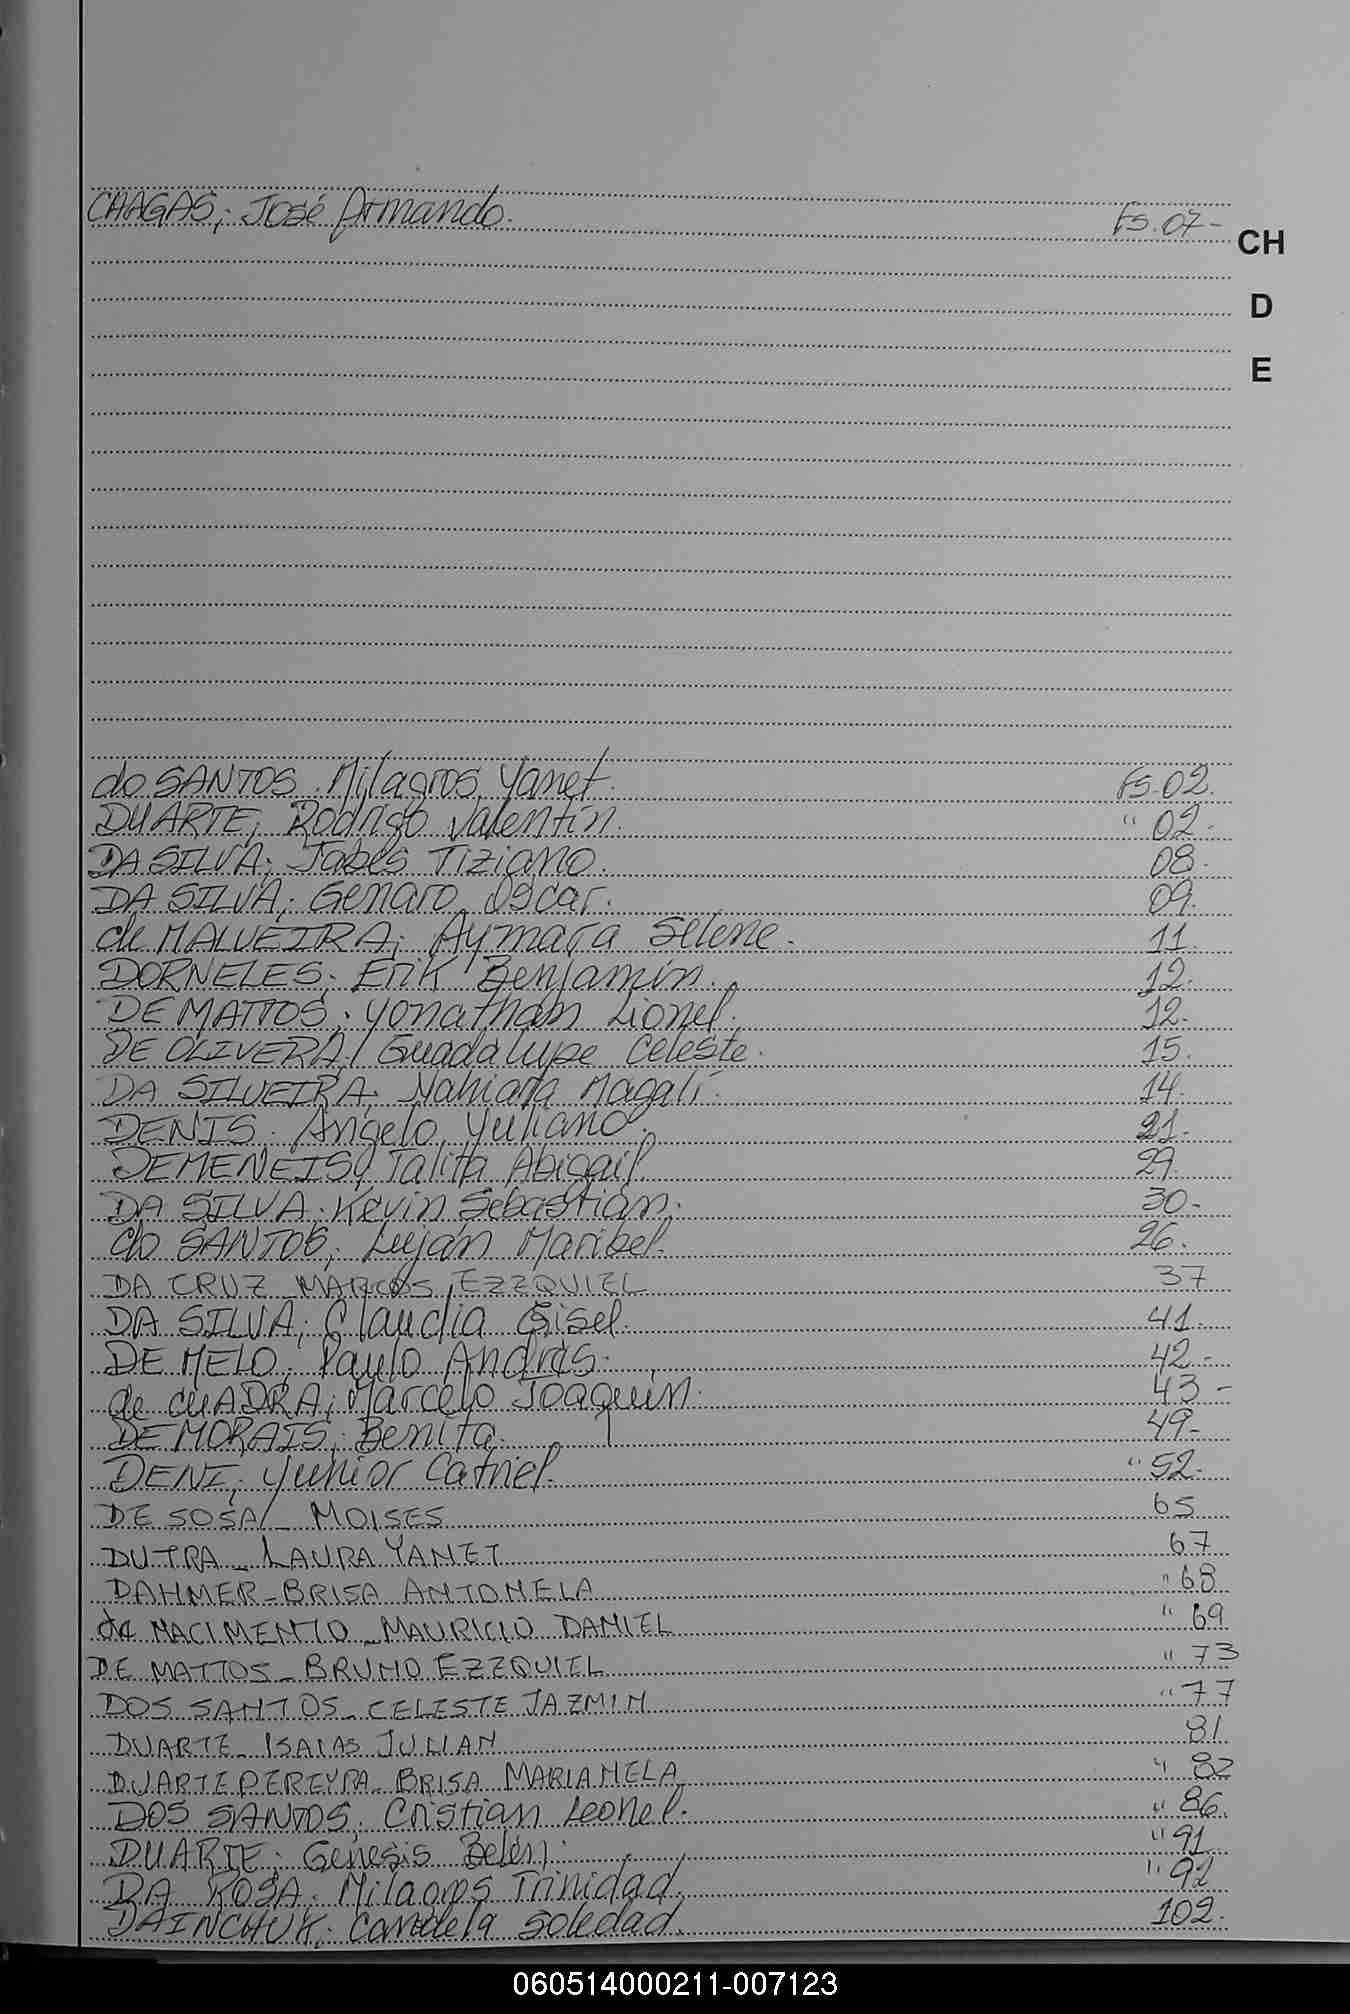 CHAGAS; José Armando. Fs. 07-
CH
D
E
do SANTOS. Milagros Yanet. Fs. 02.
DUARTE; Rodrigo Valentín. " 02.
DA SILVA; Jabes Tiziano. 08.
DA SILVA; Genaro Oscar. 09.
de MALVEIRA; Aymara Selene. 11.
DORNELES; Erik Benjamín. 12.
DE MATTOS; Yonathan Lionel. 12.
DE OLIVERA; Guadalupe Celeste. 15.
DA SILVEIRA; Nahiara Magalí. 14.
DENIS. Angelo Yuliano. 21.
DEMENEIS; Talita Abigail. 29.
DA SILVA; Kevin Sebastián. 30-
do SANTOS; Luján Maribel. 26.
DA CRUZ - MARCOS EZZQUIEL 37
DA SILVA; Claudia Gisel. 41.
DE MELO; Paulo Andrés. 42.-
de CUADRA; Marcelo Joaquín. 43-
DE MORAIS; Benita. 49.
DENI; Yunior Catriel. " 52.
DE SOSA - MOISES 65
DUTRA - LAURA YANET 67
DAHMER - BRISA ANTONELA " 68
da NACIMENTO - MAURICIO DANIEL " 69
DE MATTOS - BRUNO EZZQUIEL " 73
DOS SANTOS - CELESTE JAZMIN " 77
DUARTE - ISAIAS JULIAN 81
DUARTE PEREYRA - BRISA MARIANELA " 82
DOS SANTOS; Cristian Leonel. " 86.
DUARTE; Génesis Belén. " 91
DA ROSA; Milagros Trinidad. " 92
DAINCHUK; Candela Soledad. 102.
060514000211-007123